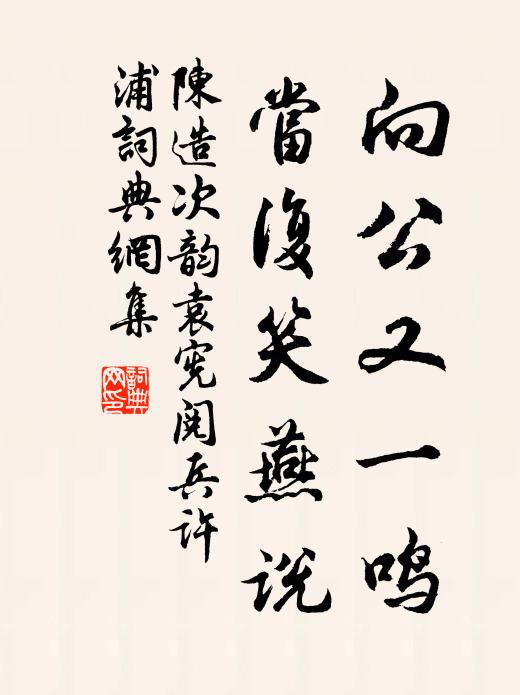 向公又一鸣
當復笑燕说
陳造次韵袁宪阅兵許
浦詞典網集
詞典网印